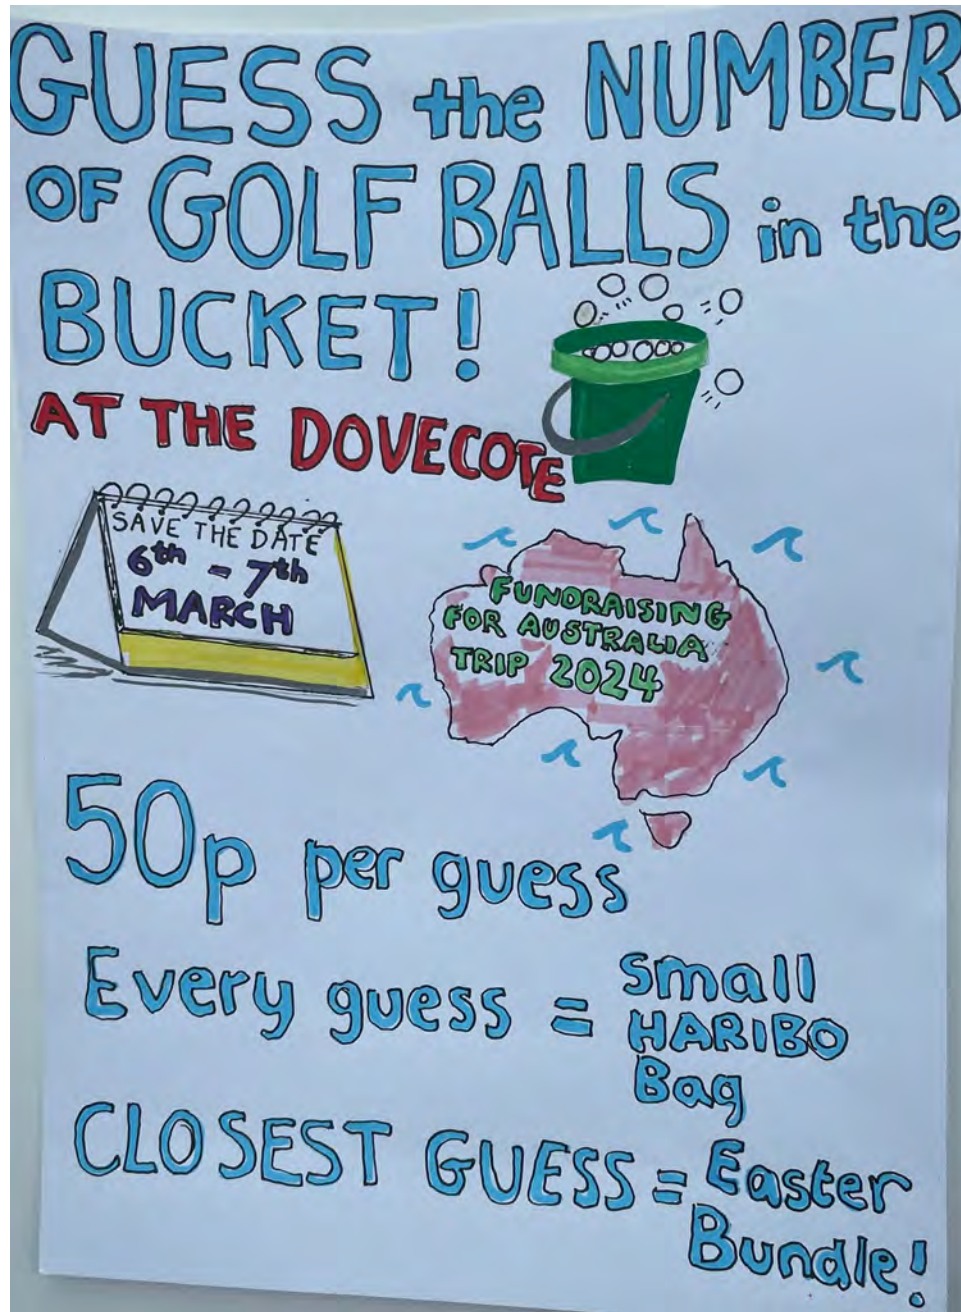 GUESS the NUMBER
OF GOLF BALLS in the
BUCKET!
AT THE DOVECOTE
SAVE THE DATE
6th - 7th
MARCH
FUNDRAISING
FOR AUSTRALIA
TRIP 2024
50p per guess
Every guess = small
HARIBO
Bag
CLOSEST GUESS = Easter
Bundle!